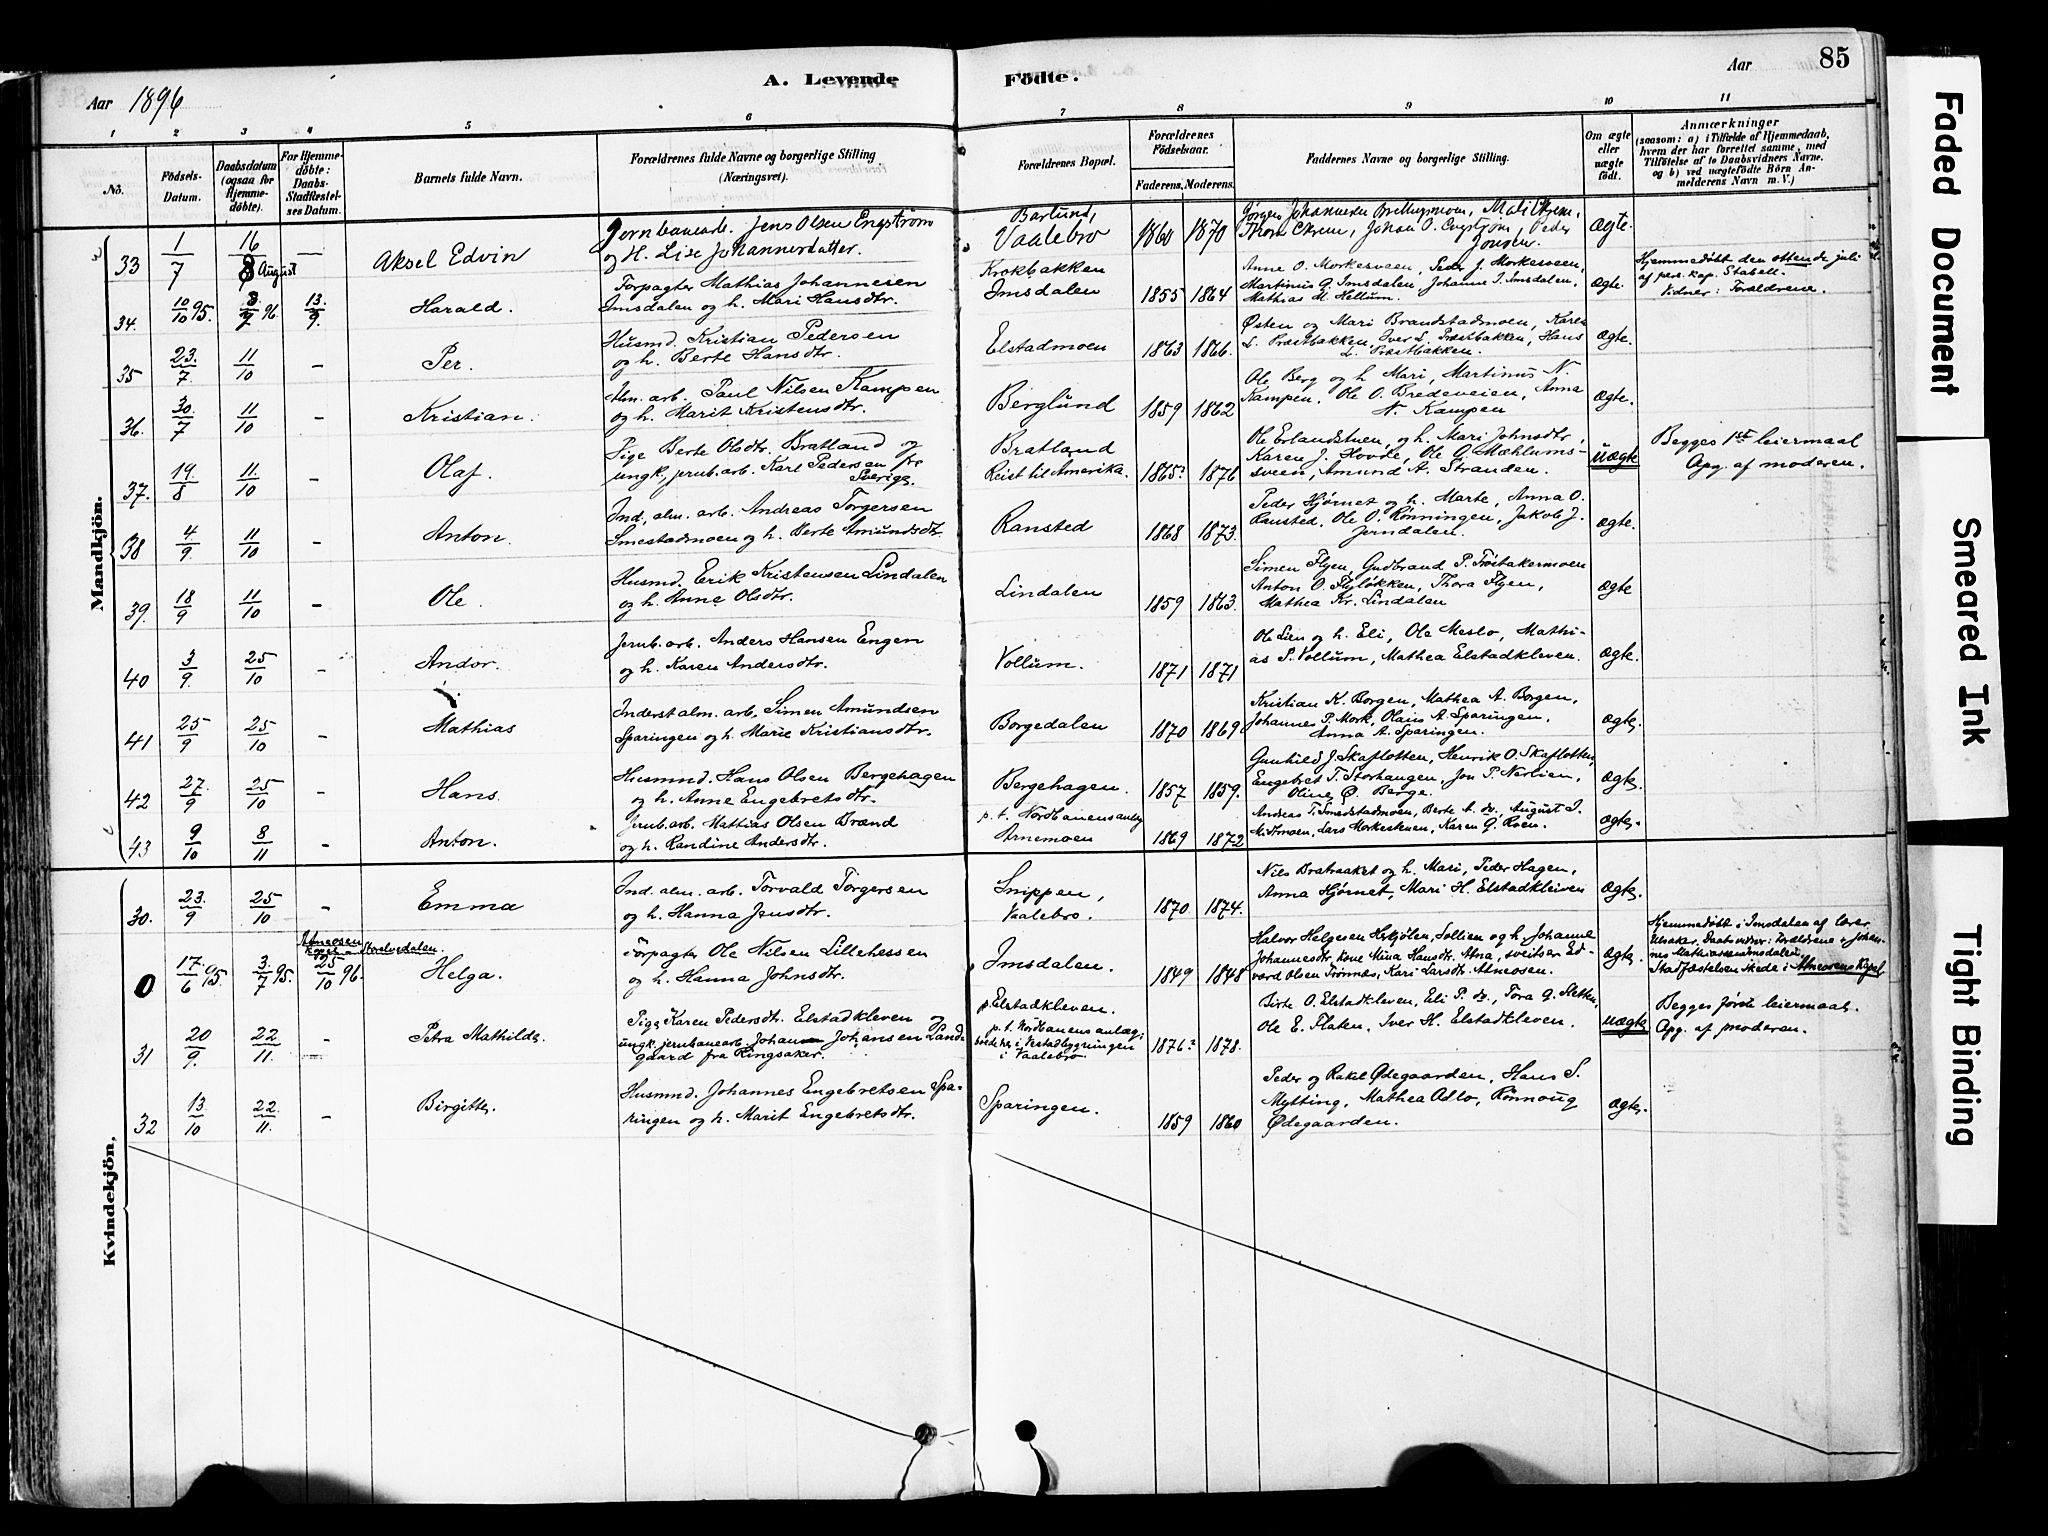 85
Aar 1896
A. Levende Födte.
Aar
1 2 3 4 5 6 7 8 9 10 11
No.
Födsels-Datum.
Daabsdatum (ogsaa for Hjemme-döbte).
For Hjemme-döbte: Daabs-Stadfæstel-ses Datum.
Barnets fulde Navn.
Forældrenes fulde Navne og borgerlige Stilling (Næringsvei).
Forældrenes Bopæl.
Forældrenes Födselsaar.
Faderens. Moderens.
Faddernes Navne og borgerlige Stilling.
Om ægte eller uægte födt.
Anmærkninger
(saasom: a) i Tilfælde af Hjemmedaab, hvem der har forrettet samme, med Tilföielse af to Daabsvidners Navne. og b) ved uægtefödte Börn Anmelderens Navn m. V.)
Mandkjön.
33 1/7 16/8 August — Aksel Edvin
Jernbanearb. Jens Olsen Engström
og H. Lise Johannesdatter.
Barlund,
Vaalebro 1860 1870
Thora Ekrem, Johan O. Engström, Peder
ægte.
34. 10/10 95. 96. 13/9. Harald.
Forpagter Mathias Johannesen
Imsdalen og h. Mari Hansdtr.
Krokbakken
Imsdalen 1855 1864
Anne O. Morkesveen, Peder J. Morkesveen,
Martinus G. Imsdalen, Johanne I. Imsdalen,
Mathias M. Hellum.
ægte.
Hjemmedöbt den ottende juli
af pers. kap. Staseth
Vidner: Forældrene.
35 23./7 11/10 — Per.
Husmd. Kristian Pedersen
og h. Berte Hansdtr.
Elstadmoen 1863 1866.
Østen og Mari Brandstadmoen, Karen
L. Præstbakken, Iver L. Præstbakken, Hans
L. Præstbakken.
ægte.
36. 30./7 11/10 — Kristian.
Alm. arb. Paul Nilsen Kampen
og h. Marit Kristensdtr.
Berglund 1859 1862
Ole Berg og h. Mari, Martinus N.
Kampen, Ole O. Bredeveien, Anna
N. Kampen
ægte.
37. 19./8 11./10 — Olaf.
Pige Berte Olsdtr. Bratland og
ungk., jernb. arb. Karl Pedersen fra
Sverige.
Bratland
Reist til Amerika. 1865? 1876
Ole Erlandstuen, og h. Mari Johnsdtr.,
Karen J. Hovde, Ole O. Mæhlums-
sveen, Amund A. Stranden.
uægte
Begges 1ste leiermaal
Opg. af moderen.
38 4/9. 11/10 — Anton.
Ind., alm. arb. Andreas Torgersen
Smestadmoen og h. Berte Amundsdtr.
Ransted 1868 1873.
Peder Hjørnet og h. Marte, Anna O.
Ransted, Ole O. Rønningen, Jakob J.
Jerndalen.
ægte.
39. 18/9 11/10 — Ole.
Husmd. Erik Kristensen Lindalen
og h. Anne Olsdtr.
Lindalen 1859 1863.
Simen Flyen, Gudbrand P. Trøstakermoen
Anton O. Flyløkken, Thora Flyen,
Mathea Kr. Lindalen
ægte
40 3/9. 25/10 — Andor.
Jernb. arb. Anders Hansen Engen
og h. Karen Andersdtr.
Vollum. 1871 1871
Ole Lien og h. Eli, Ole Meslo, Mathi-
as S. Vollum, Mathea Elstadkleven.
ægte.
41 25/9 25/10 — Mathias
Inderst alm. arb. Simen Amundsen
Sparingen og h. Marie Kristiansdtr.
Borgedalen 1870 1869
Kristian K. Borgen, Mathea A. Borgen,
Johannes P. Mork, Olaus A. Sparingen,
Anna A. Sparingen.
ægte.
42 27./9 25/10 — Hans.
Husmnd. Hans Olsen Bergehagen
og h. Anne Engebretsdtr.
Bergehagen. 1857 1859.
Gunhild J. Skafløtten, Henrik O. Skafløtten,
Engebret T. Storhaugen, Jon P. Nerlien,
Oline Ø. Berge.
ægte.
43 9/10 8/11 — Anton.
Jernb. arb. Mathias Olsen Brænd
og h. Randine Andersdtr.
p. t. Nordbanensanlæg
Arnemoen 1869 1872
Andreas T. Smedstadmoen, Berte A. do, August I.
Midtmoen, Lars Morkestuen, Karen G. Roen.
ægte.
Kvindekjön.
30. 23./9 25/10 — Emma
Ind. alm. arb. Torvald Torgersen
og h. Hanna Jensdtr.
Snippen,
Vaalebro. 1870 1874.
Nils Bratraaket og h. Mari, Peder Hagen,
Anna Hjørnet, Mari H. Elstadkleiven
ægte.
Atneosen
kapel Storelvedalen.
0 17./6 95. 3/7 95. 25/10 96 Helga.
Forpagter Ole Nilsen Lillehessen
og h. Hanna Johnsdtr.
Imsdalen. 1849 1848
Halvor Helgesen Hskjölen, Sollien og h. Johanne
Johannesdtr. kone Mina Hansdtr. Atna, sveitser Ed-
vard Olsen Trønnæs, Kari Larsdtr. Atneosen.
ægte.
Hjemmedöbt i Imsdalen af lærer
Ulsaker. Daabsvidner: Forældrene & Johan-
nes Mathiassen Imsdalen.
Stadfæstelsen skede i Atneosens Kapel
31 20/9. 22/11. — Petra Mathilde.
Pige Karen Pedersdtr. Elstadkleven og
ungk. jernbanearb. Johan Johansen Land-
gaard fra Ringsaker.
p. Elstadkleven.
p. t. Nordbanens anlæg;
i Vaalebro 1876? 1878.
Birte O. Elstadkleven, Eli P. do., Tora G. Sletten,
Ole E. Flaten, Iver H. Elstadkleven.
uægte
Begges første leiermaal.
Opg. af moderen.
32 13/10 22./11. — Birgitte.
Husmnd. Johannes Engebretsen Spa-
ringen og h. Marit Engebretsdtr.
Sparingen. 1859 1860
Peder og Rakel Ødegaarden, Hans S.
Mytting, Mathea Odlo, Rønnoug
Ødegaarden.
ægte.
Faded Document
Smeared Ink
Tight Binding